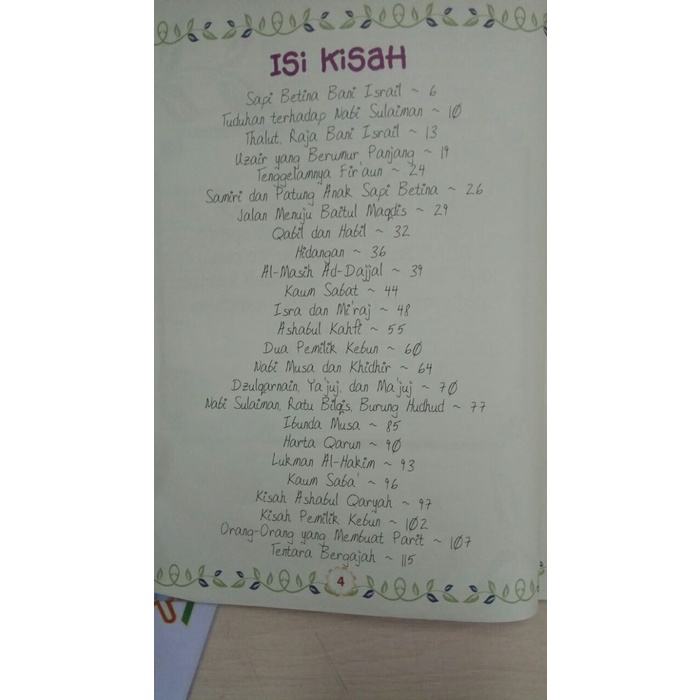 ISI KISAH
Sapi Betina Bani Israil ~ 6
Tuduhan terhadap Nabi Sulaiman ~ 10
Thalut, Raja Bani Israil ~ 13
Uzair yang Berumur Panjang ~ 19
Tenggelamnya Fir'aun ~ 24
Samiri dan Patung Anak Sapi Betina ~ 26
Jalan Menuju Baitul Maqdis ~ 29
Qabil dan Habil ~ 32
Hidangan ~ 36
Al-Masih Ad-Dajjal ~ 39
Kaum Sabat ~ 44
Isra dan Mi'raj ~ 48
Ashabul Kahfi ~ 55
Dua Pemilik Kebun ~ 60
Nabi Musa dan Khidhir ~ 64
Dzulqarnain, Ya'juj, dan Ma'juj ~ 70
Nabi Sulaiman, Ratu Bilqis, Burung Hudhud ~ 77
Ibunda Musa ~ 85
Harta Qarun ~ 90
Lukman Al-Hakim ~ 93
Kaum Saba' ~ 96
Kisah Ashabul Qaryah ~ 97
Kisah Pemilik Kebun ~ 102
Orang-Orang yang Membuat Parit ~ 107
Tentara Bergajah ~ 115
4